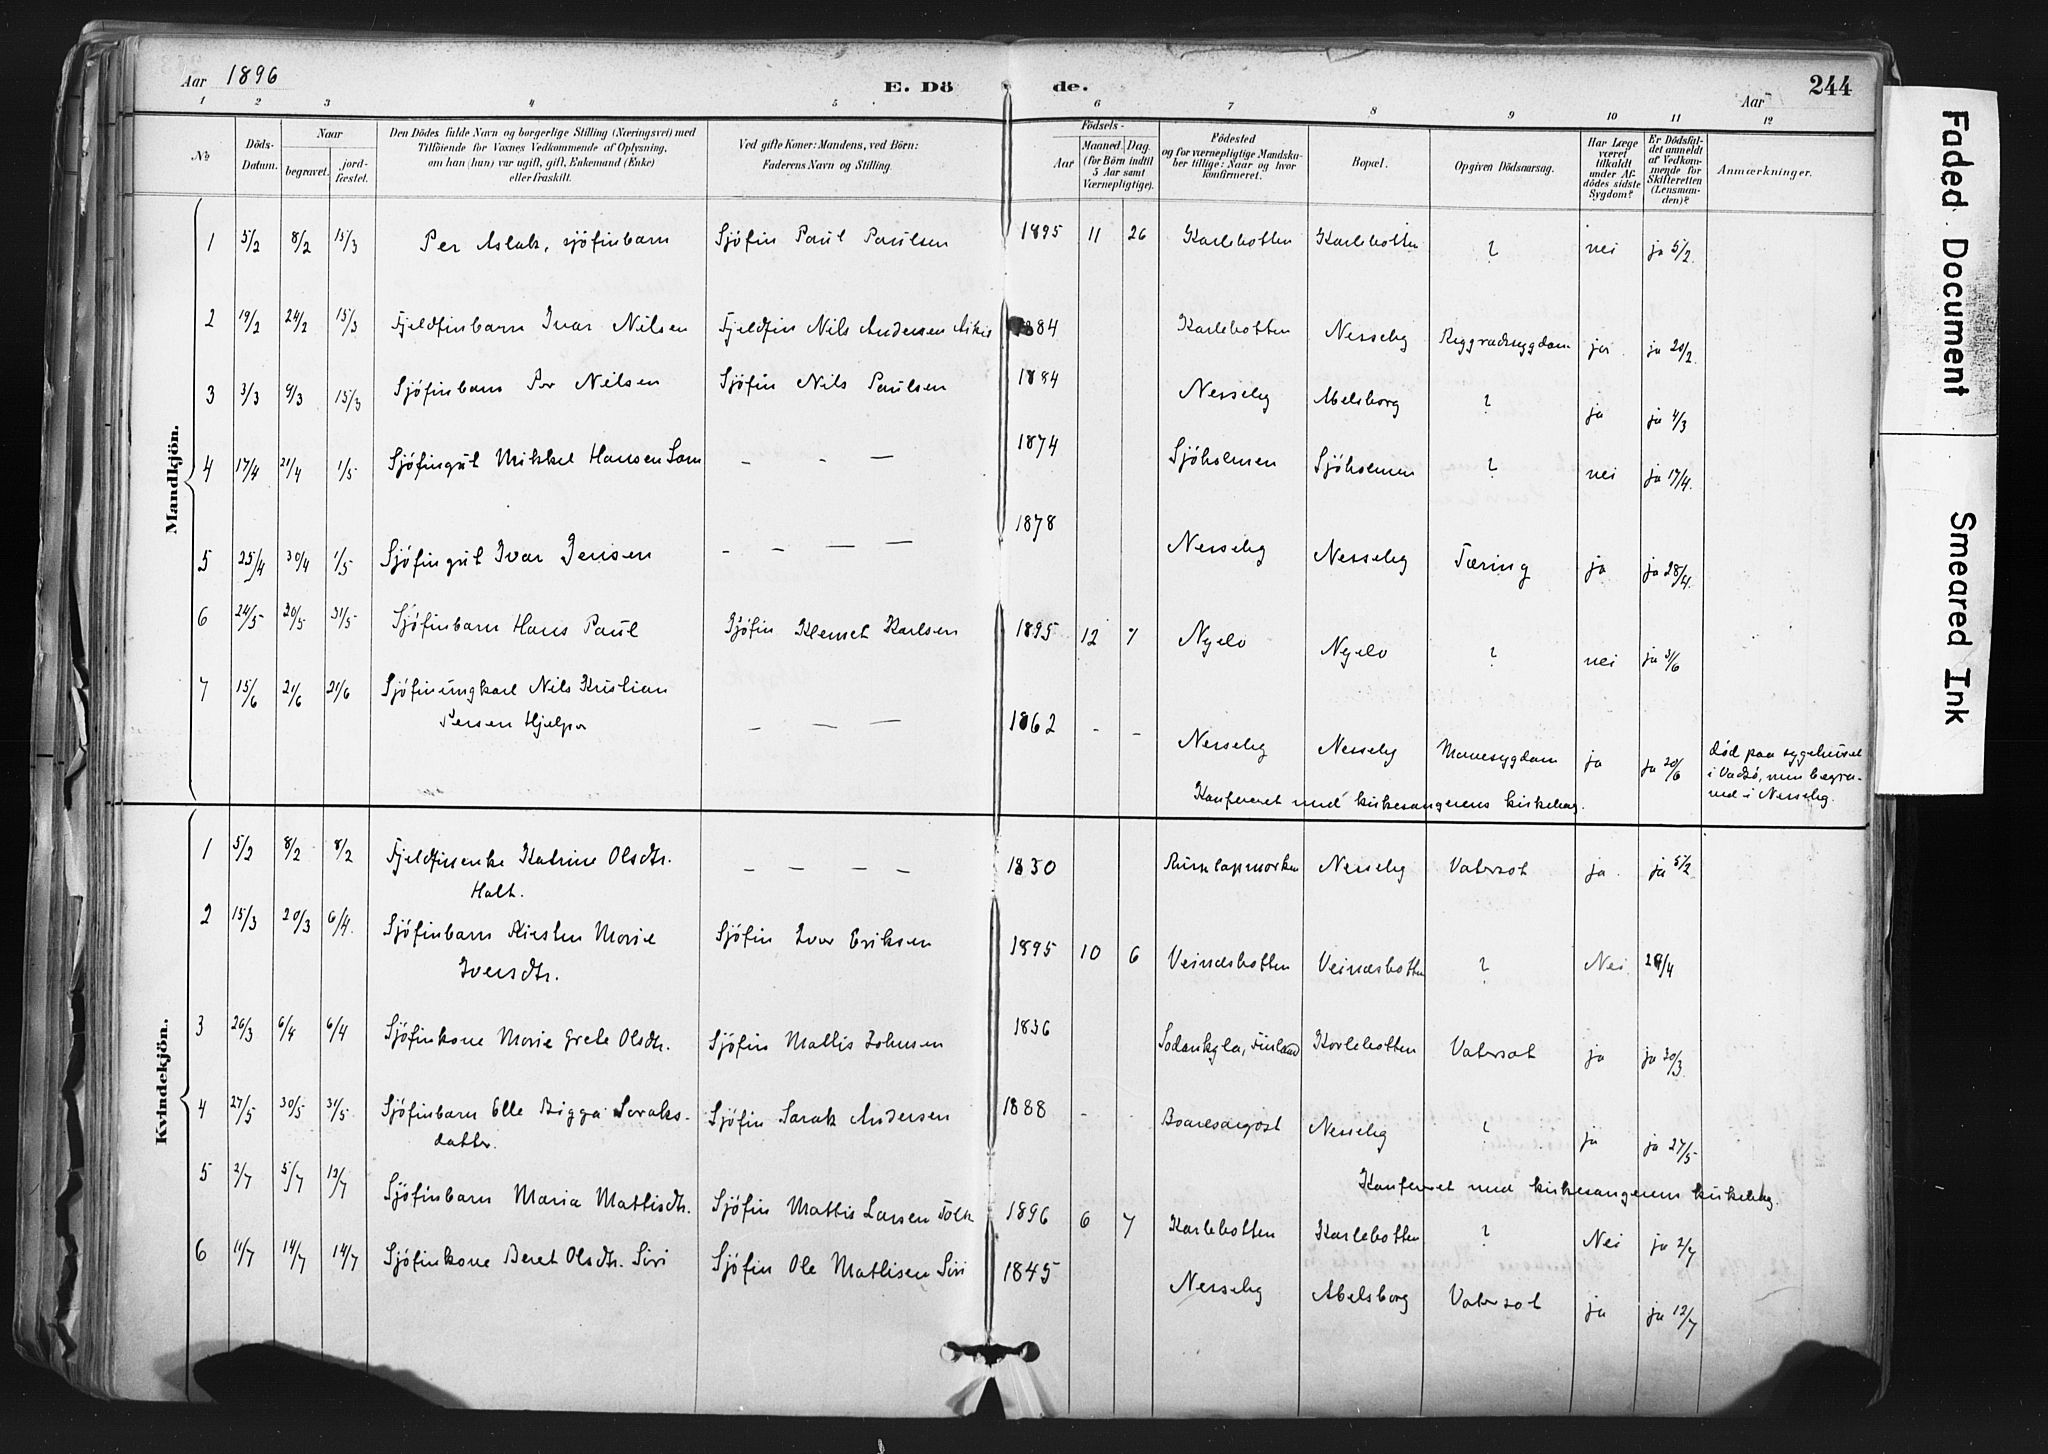 Aar 1896
E. Döde.
Aar
244
1 2 3 4 5 6 7 8 9 10 11 12
No
Döds-Datum.
Naar
begravet.
jord-fæstet.
Den Dödes fulde Navn og borgerlige Stilling (Næringsvei) med
Tilföiende for Voxnes Vedkommende af Oplysning,
om han (hun) var ugift, gift, Enkemand (Enke)
eller fraskilt.
Ved gifte Koner: Mandens, ved Börn:
Faderens Navn og Stilling.
Födsels-
Aar
Maaned. Dag.
(for Börn indtil
5 Aar samt
Værnepligtige).
Födested
og for værnepligtige Mandska-
ber tillige: Naar og hvor
konfirmeret.
Bopæl.
Opgiven Dödsaarsag.
Har Læge
været
tilkaldt
under Af-
dödes sidste
Sygdom?
Er Dödsfal-
det anmeldt
af Vedkom-
mende for
Skifteretten
(Lensman-
den)?
Anmærkninger.
Mandkjön.
1 5/2 8/2 15/3 Per Aslak, sjöfinbarn Sjöfin Paul Paulsen 1895 11 26 Karlebotten Karlebotten ? nei ja 5/2.
2 19/2 24/2 15/3 Fjeldfinbarn Ivar Nilsen Fjeldfin Nils Andersen Aikio 1884 Karlebotten Nesseby Rygradssygdom ja ja 20/2.
3 3/3 9/3 15/3 Sjöfinbarn Per Nilsen Sjöfin Nils Paulsen 1884 Nesseby Abelsborg ? ja ja 4/3
4 17/4 21/4 1/5 Sjöfingut Mikkel Hansen Sam - - - 1874 Sjöholmen Sjöholmen ? nei ja 17/4.
5 25/4 30/4 1/5 Sjöfingut Ivar Jensen - - - - 1878 Nesseby Nesseby Tæring ja ja 28/4.
6 24/5 30/5 31/5 Sjöfinbarn Hans Paul Sjöfin Klemet Karlsen 1895 12 7 Nyelv Nyelv ? nei ja 3/6
7 15/6 21/6 21/6 Sjöfinungkarl Nils Kristian
Persen Hjelper - - - 1862 - - Nesseby Nesseby Mavesygdom ja ja 20/6 død paa sygehuset
i Vadsö, men begra-
ved i Nesseby.
Konfereret med kirkesangerens kirkebog.
Kvindekjön.
1 5/2 8/2 8/2 Fjeldfinenke Katrine Olsdtr.
Halt. - - - - 1830 Nesseby Vatersot ja ja 5/2
2 15/3 20/3 6/4. Sjöfinbarn Kirsten Marie
Iversdtr. Sjöfin Ivar Eriksen 1895 10 6 Veinesbotten Veinesbotten ? Nei
3 26/3 6/4 6/4 Sjöfinkone Marie Grete Olsdtr. Sjöfin Mattis Johnsen 1836 Sodankyla, Finland Karlebotten Vatersot ja ja 30/3.
4 27/5 30/5 31/5 Sjöfinbarn Elle Bigga Saraks-
datter. Sjöfin Sarak Andersen 1888 - - Nesseby ? ja ja 27/5
Konfereret med kirkesangerens kirkebog.
5 2/7 5/7 12/7 Sjöfinbarn Maria Mattisdtr. Sjöfin Mattis Larsen Tolk 1896 6 7 Karlebotten Karlebotten ? Nei ja 2/7
6 11/7 14/7 14/7 Sjöfinkone Beret Olsdtr. Siri Sjöfin Ole Mathisen Siri 1845 Nesseby Abelsborg Vatersot ja ja 12/7
Faded Document
Smeared Ink